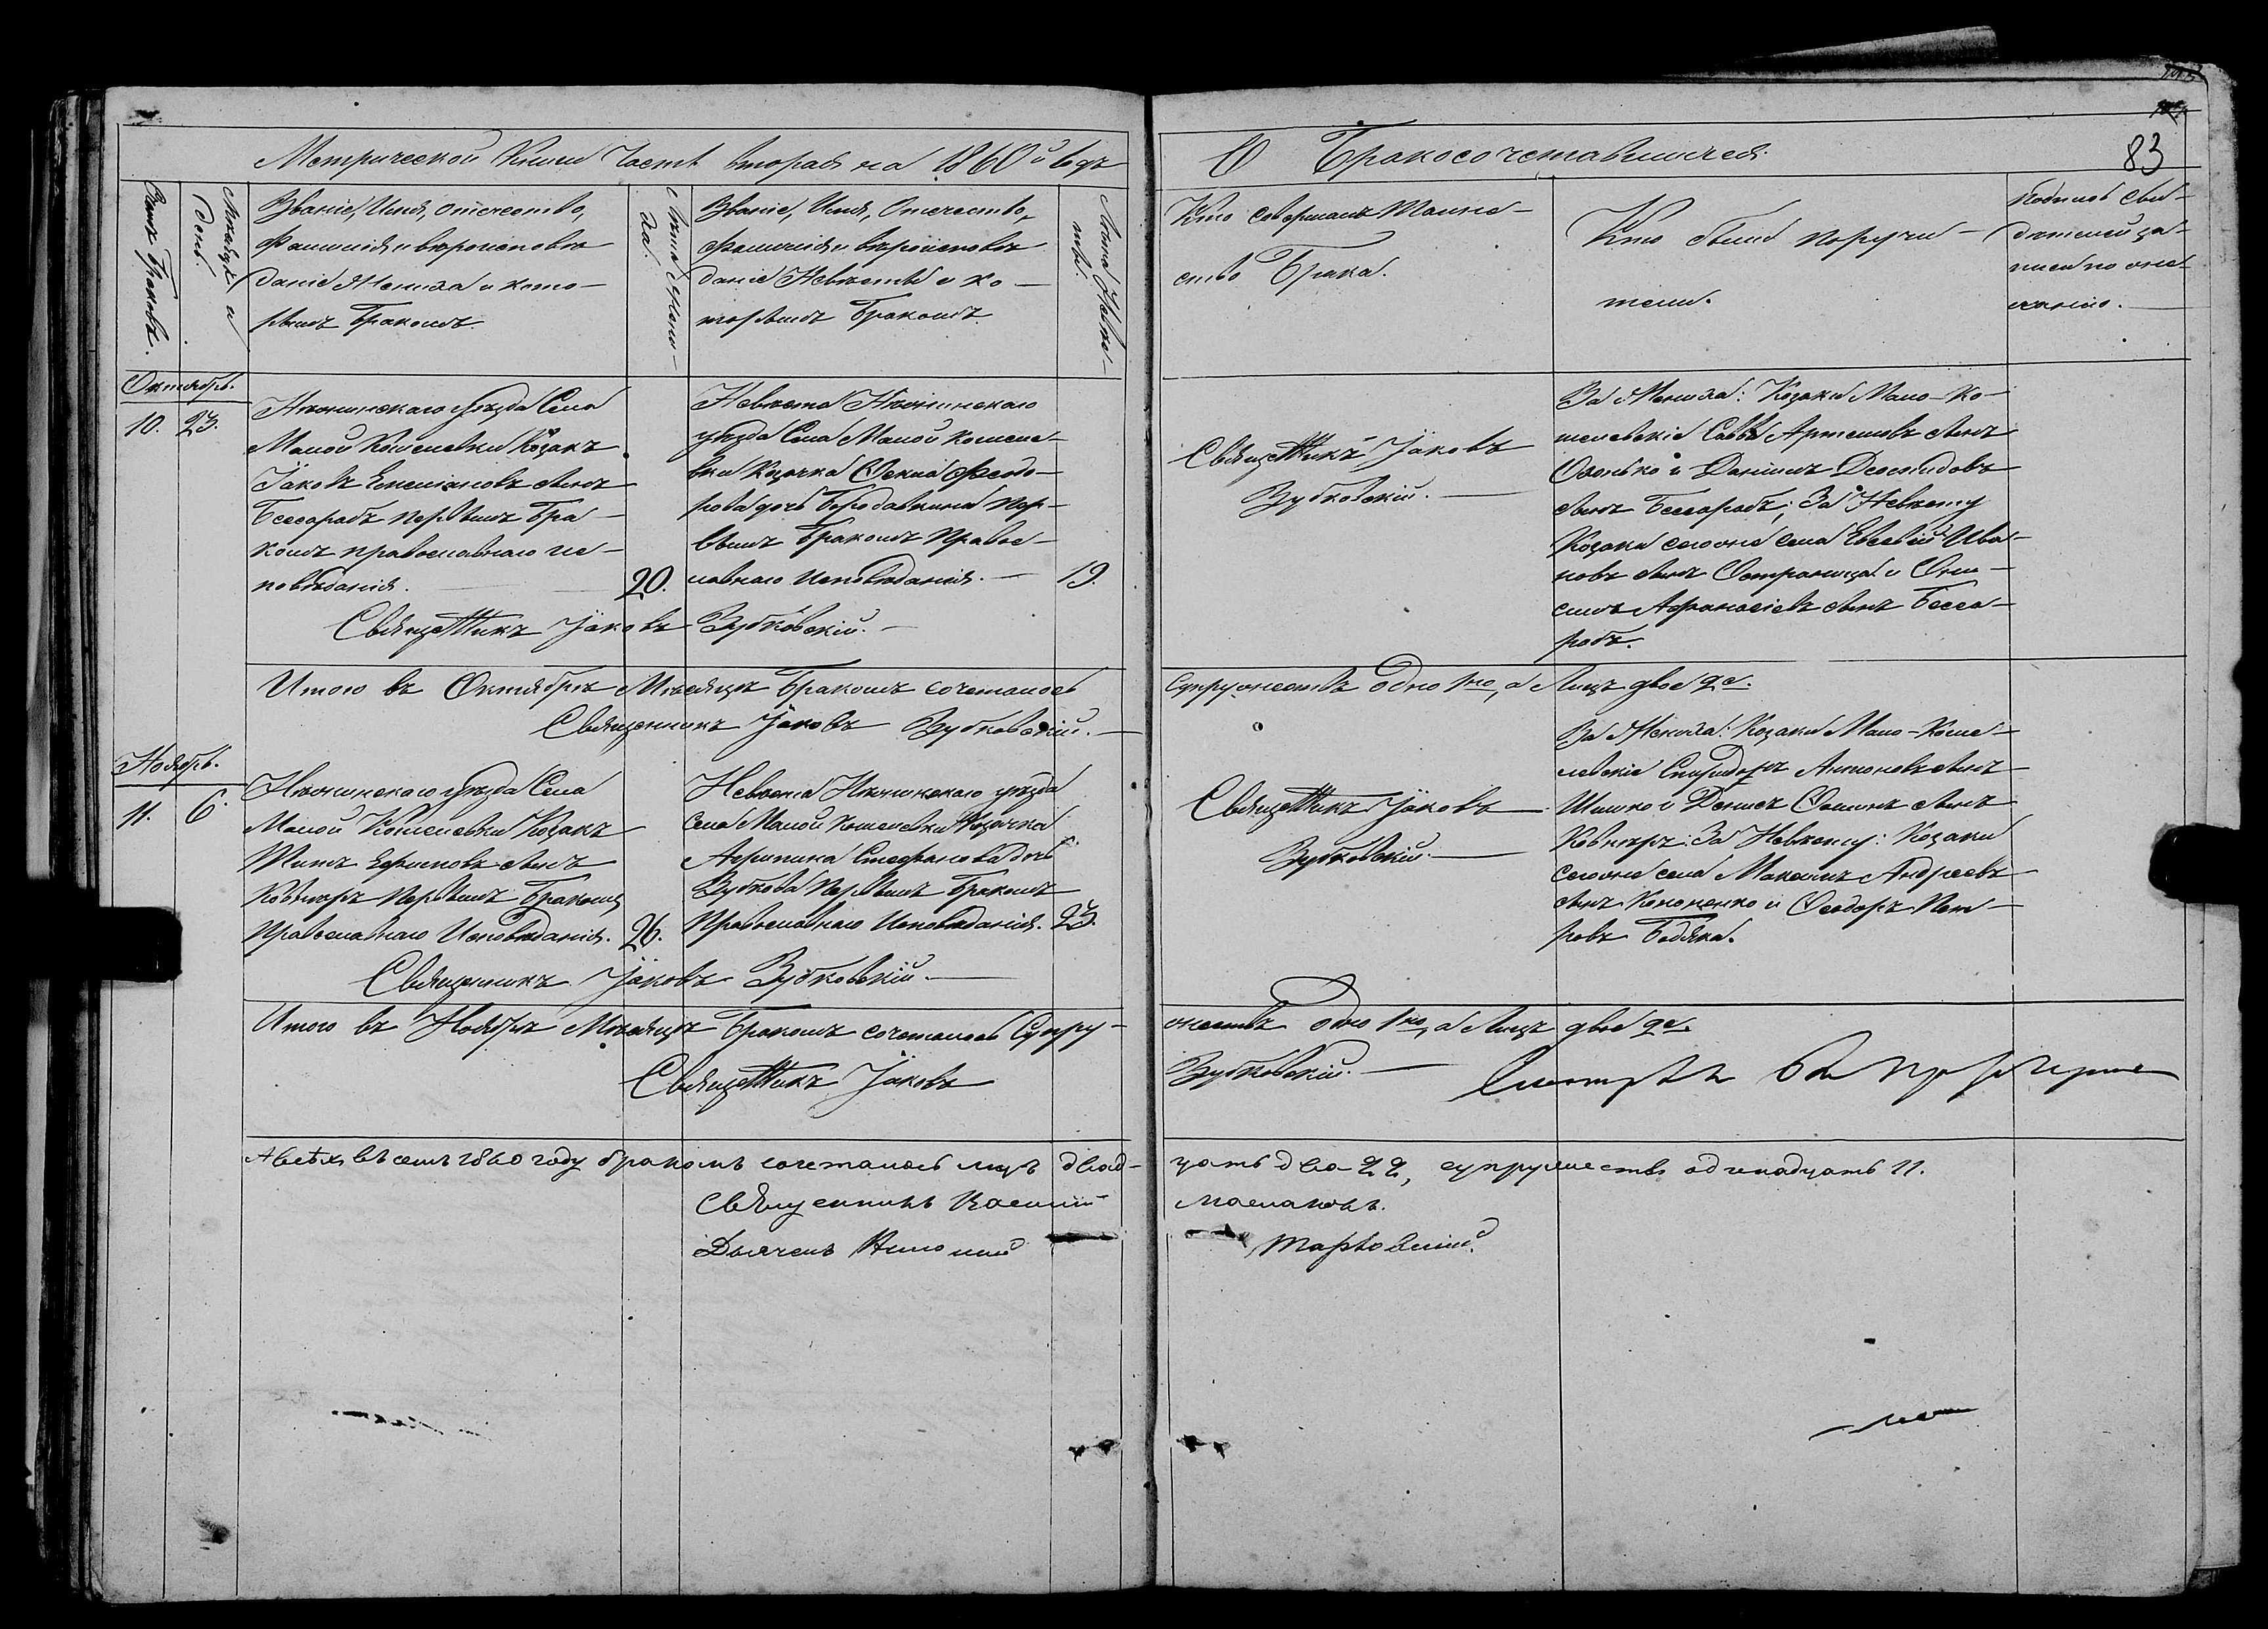 Метрической Книги Часть вторая на 1860й годъ
О Бракосочетавшихся.
83
Счетъ Браковъ.
Мѣсяцъ и
День.
Званіе, Имя, отечество,
Фамилія и вѣроисповѣ
даніе Жениха и кото-
рымъ Бракомъ.
Лѣта Жени-
ха.
Званіе, Имя, Отечество,
Фамилія и вѣроисповѣ
даніе Невѣсты и ко-
торымъ Бракомъ.
Лѣта Невѣ-
сты.
Кто совершалъ Таин-
ство Брака.
Кто были поручи-
тели.
Подпись сви-
дѣтелей за-
писи по же-
ланію.
Октябрь.
10. 23.
Нѣжинскаго уѣзда Села
Малой Кошелевки Козакъ
Іаковъ Емеліановъ сынъ
Бессарабъ первымъ бра-
комъ православнаго ис-
повѣданія.
20.
Невѣста Нѣжинскаго
уѣзда Села Малой Кошеле-
вки Козачка Ѳекла Федо-
рова дочь Бородавкина пер-
вымъ Бракомъ Правос-
лавнаго Исповѣданія.
19.
Священникъ Іаковъ Зубковскій.
Священникъ Іаковъ
Зубковскій.
За Жениха: Козаки Мало-Ко-
шелевскіе Савва Артемовъ сынъ
и Даніилъ Деомидовъ
сынъ Бессарабъ; За Невѣсту
Козаки тогоже села Евсевій Ива-
новъ сынъ Остраница и Они-
симъ Афанасіевъ сынъ Бесса-
рабъ.
Итого въ Октябрѣ Мѣсяцѣ Бракомъ сочеталось
Супружествъ Одно 1но, а Лицъ двое 2е.
Священникъ Іаковъ Зубковскій.
Ноябрь.
11. 6.
Нѣжинскаго уѣзда Села
Малой Кошелевки Козакъ
Титъ Ефимовъ сынъ
Ковнеръ Первымъ Бракомъ
Православнаго Исповѣданія.
26.
Невѣста Нѣжинскаго уѣзда
Села Малой Кошелевки Козачка
Агрипина Стефанова дочь
Зубкова Первымъ Бракомъ
Православнаго Исповѣданія.
23.
Священникъ Іаковъ Зубковскій.
Священникъ Іаковъ
Зубковскій.
За Жениха: Козаки Мало-Коше-
левскіе Спиридонъ Антоновъ сынъ
Шишко и Денисъ Ѳоминъ сынъ
Ковнеръ: За Невѣсту: Козаки
тогоже села Максимъ Андреевъ
сынъ Кононенко и Ѳеодоръ Пет-
ровъ Бодяка.
Итого въ Ноябрѣ Мѣсяцѣ Бракомъ сочеталось Супру-
жествъ Одно 1но, а Лицъ двое 2е.
Священникъ Іаковъ
Зубковскій.
А всѣхъ въ семъ 1860 году бракомъ сочеталось лицъ двад-
цать два 22, супружествъ одинадцать 11.
Священникъ Василій
Маслаковъ.
Дьячекъ
Тарковскій.